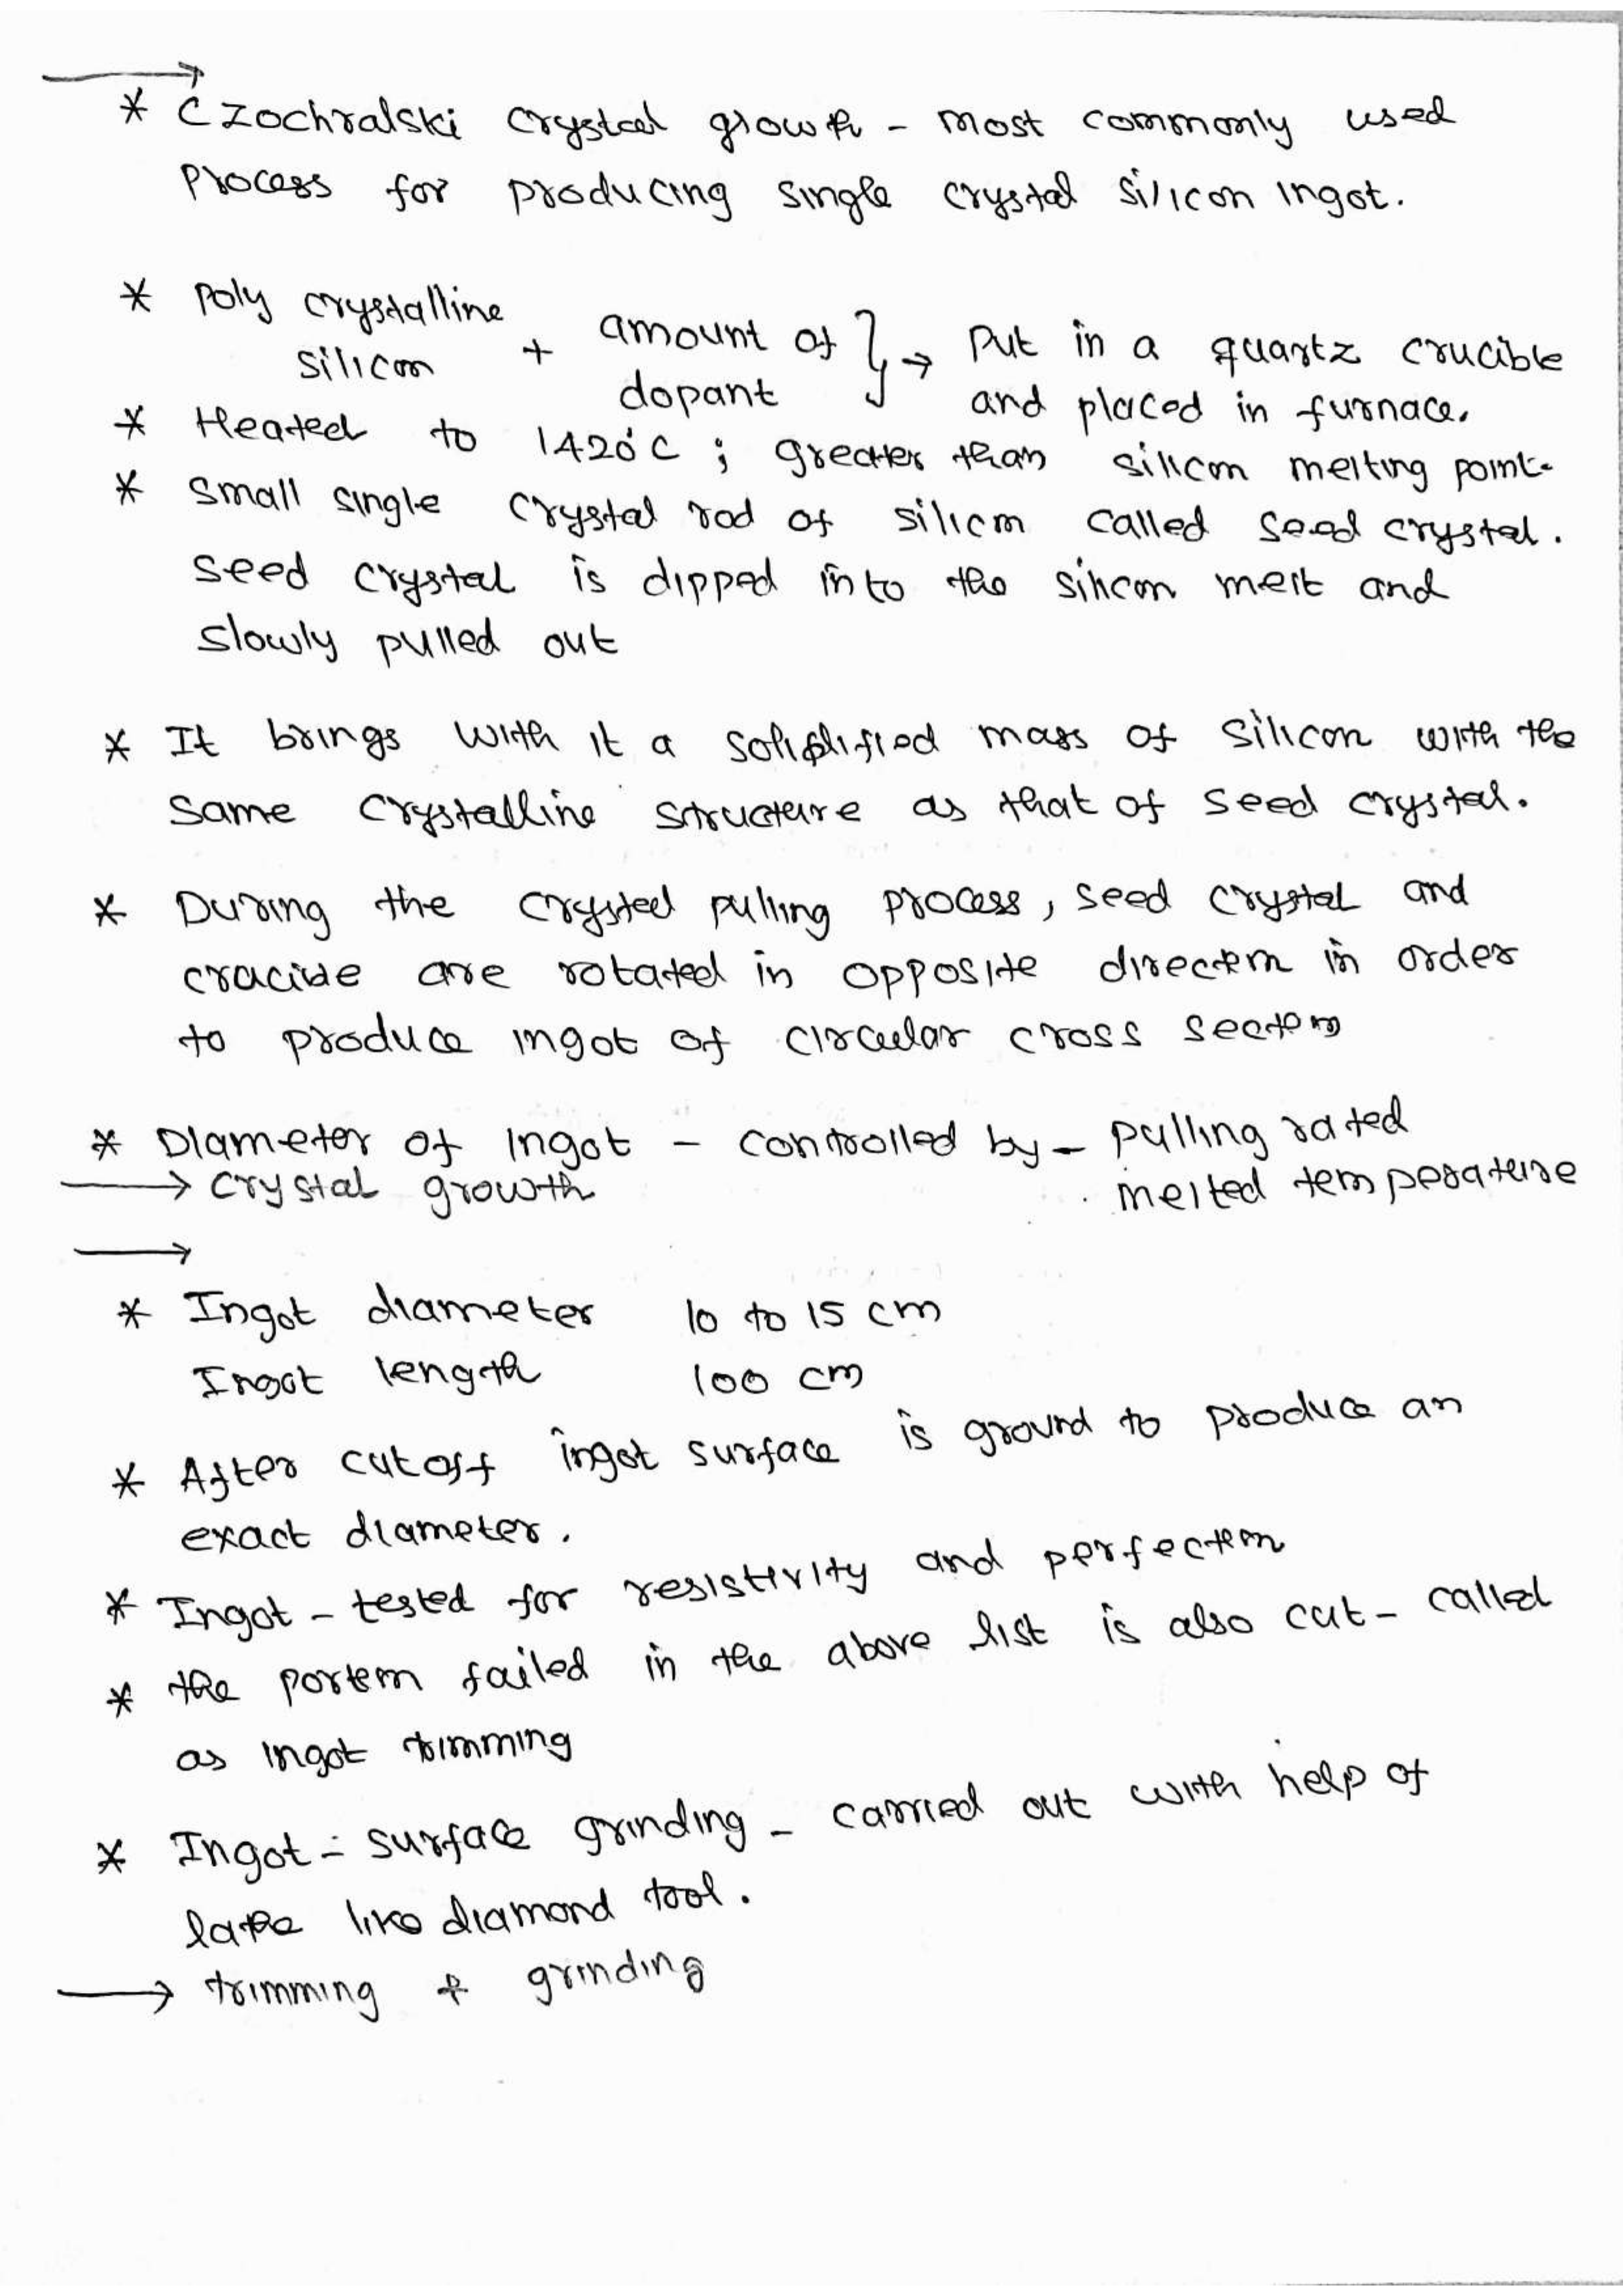 →
* Czochralski crystal growth - most commonly used
process for producing single crystal silicon ingot.
* Poly crystalline silicon + amount of dopant } → Put in a quartz crucible
and placed in furnace.
* Heated to 1420°C ; greater than silicon melting point.
* Small single crystal rod of silicon called seed crystal.
seed crystal is dipped into the silicon melt and
slowly pulled out
* It brings with it a solidified mass of silicon with the
same crystalline structure as that of seed crystal.
* During the crystal pulling process, seed crystal and
cracible are rotated in opposite direction in order
to produce ingot of circular cross section
* Diameter of Ingot - controlled by - pulling rated
melted temperature
→ crystal growth
→
* Ingot diameter 10 to 15 cm
Ingot length 100 cm
* After cutoff ingot surface is ground to produce an
exact diameter.
* Ingot - tested for resistivity and perfection
* the portion failed in the above list is also cut - called
as ingot trimming
* Ingot - surface grinding - carried out with help of
lathe like diamond tool.
→ trimming & grinding